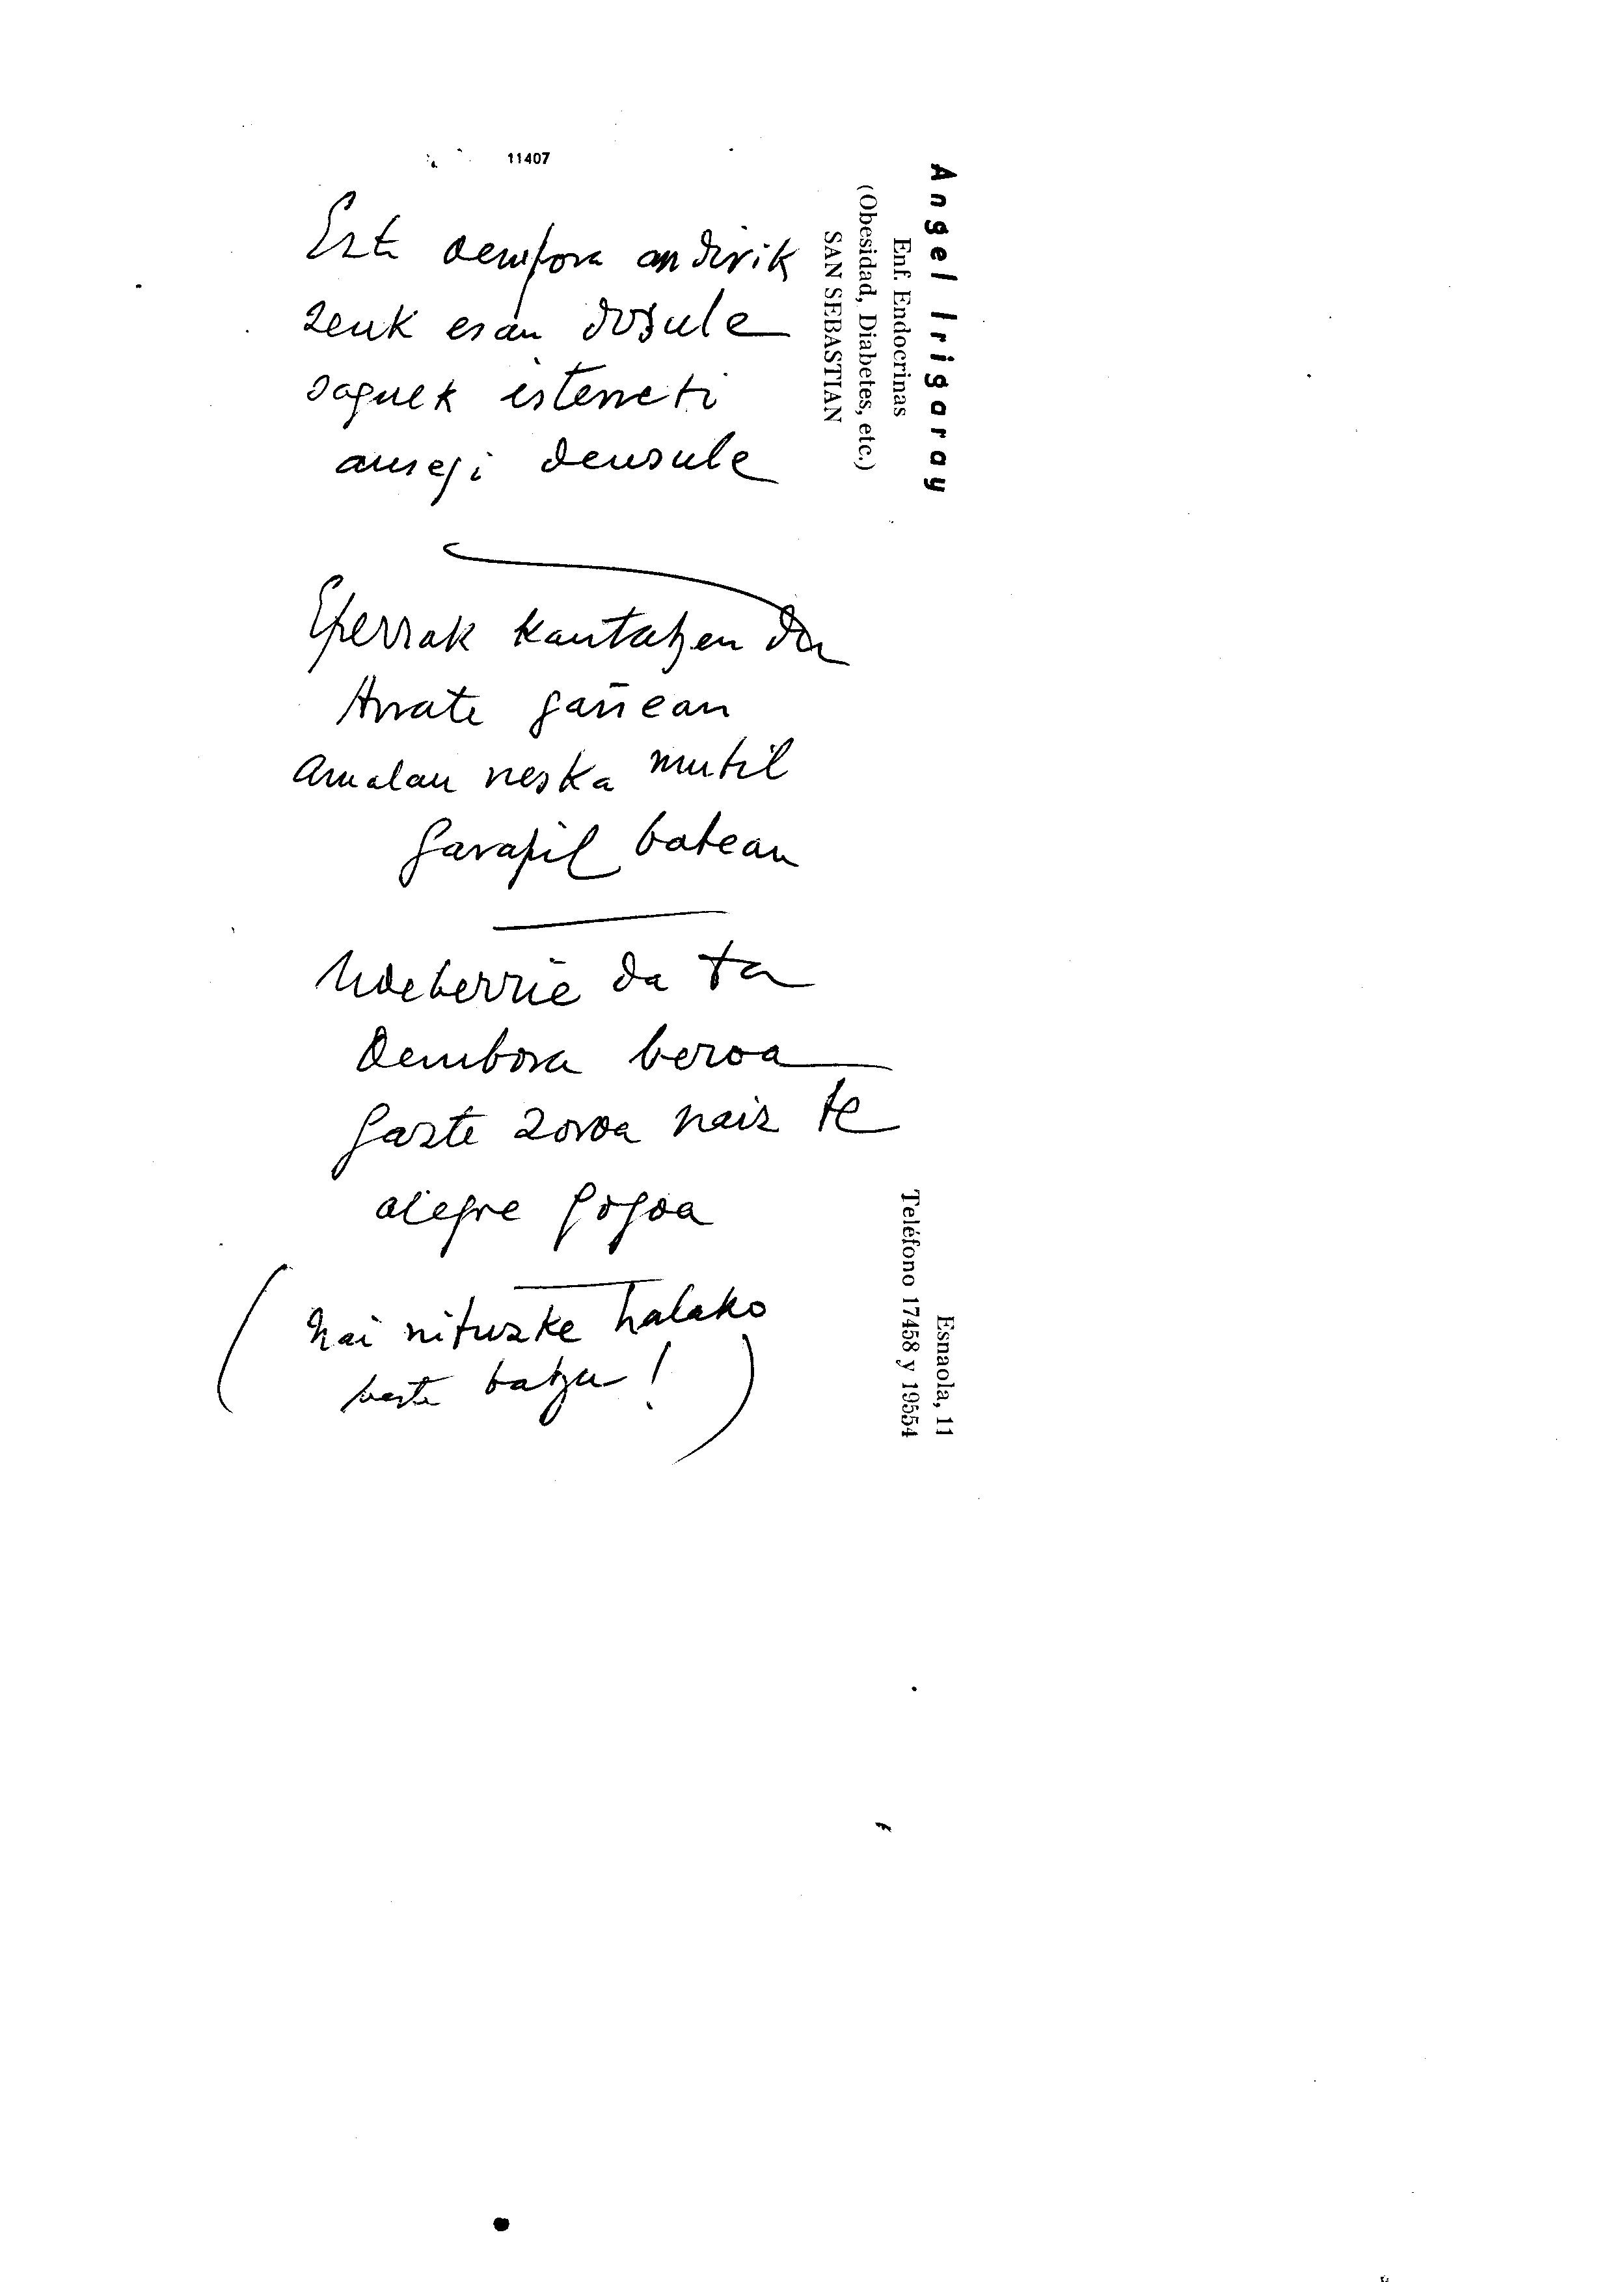 11407
Angel Irigaray
Enf. Endocrinas
(Obesidad, Diabetes, etc.)
SAN SEBASTIAN
Esnaola, 11
Teléfono 17458 y 19554
Ezta denpora andirik
zeuk esan dosule
saguek isterreti
ausegi deusule
Eperrak kantatzen da
Arrate gañean
Amalau neska mutil
garapil batean
Udeberrie da ta
dembora beroa
gazte zoroa naiz te
alegre gogoa
(nai nituzke halako
beste batzu!)